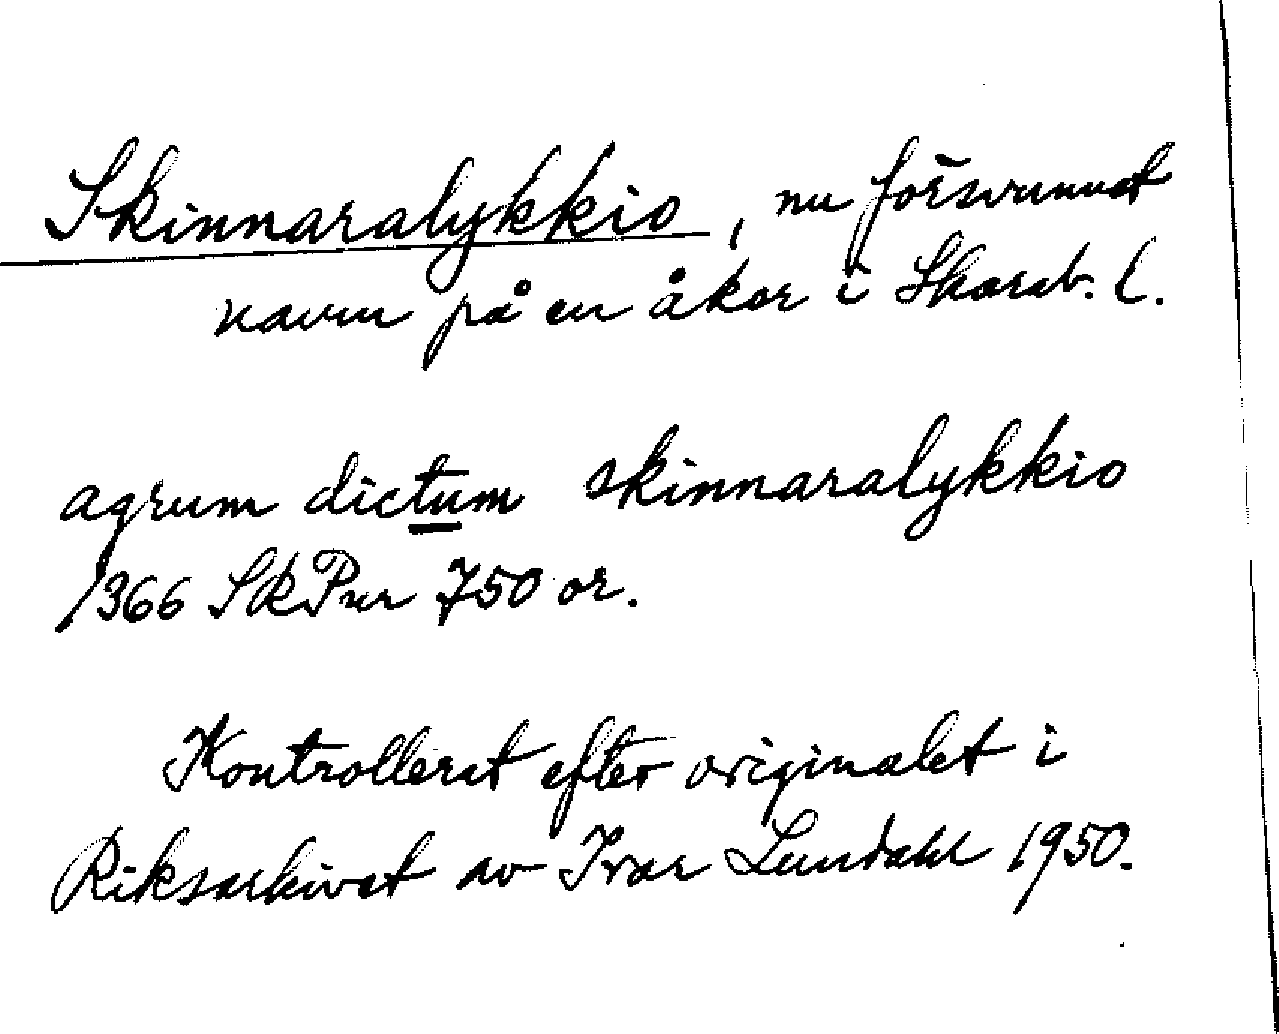 Skinnaralykkio, nu försvunnet
navn på en åker i Skarab. l.
agrum dictum skinnaralykkio
1366 SRPur 750 or.
Kontrollerat efter originalet i
Riksarkivet av Ivar Lundahl 1950.